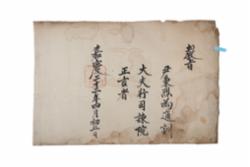 敎旨
尹東爲通訓
大夫行司諫院
正言者
嘉慶二十年四月初日